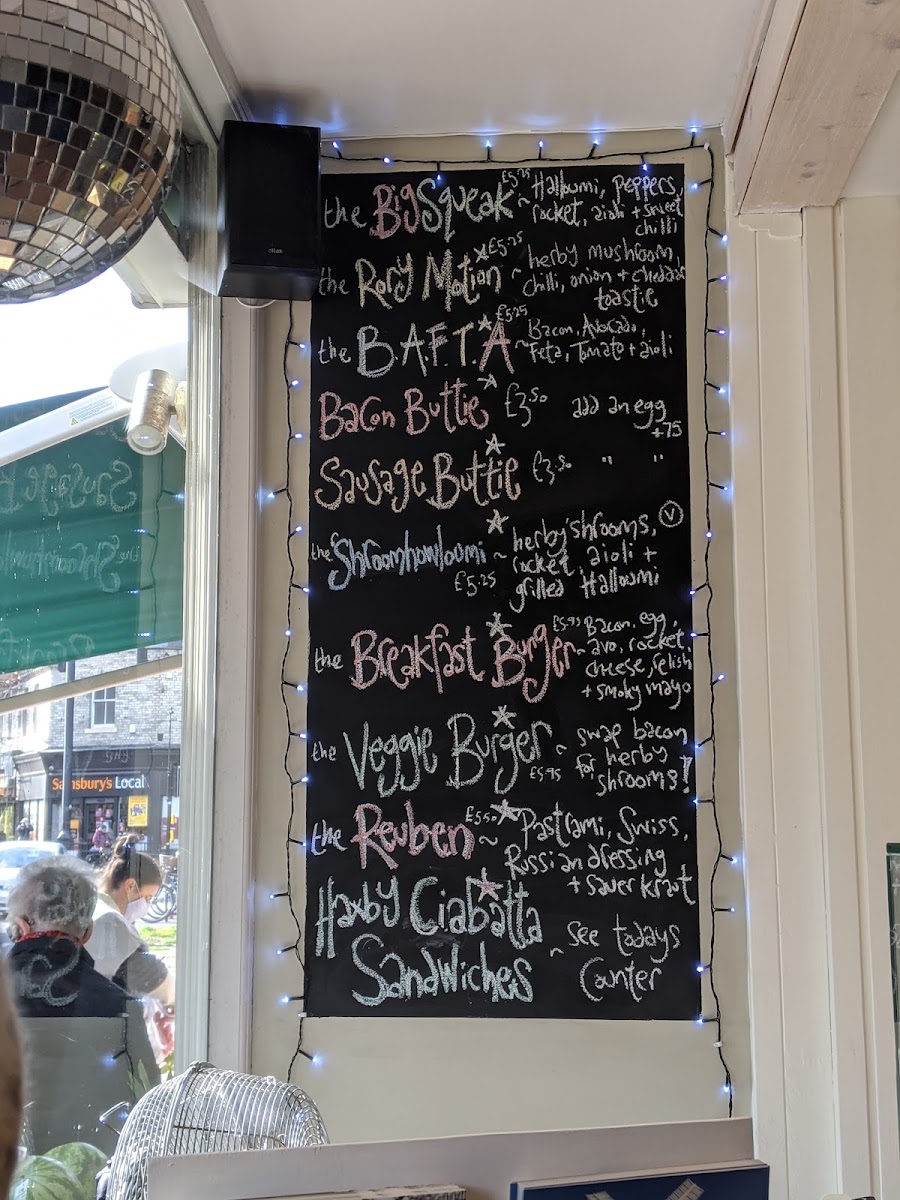 the BigSqueak £5.75 ~ Halloumi, peppers,
rocket, aioli + sweet
chilli
the Rory Motion £5.25 ~ herby mushroom
chilli, onion + cheddar
toastie
the B.A.F.T.A £5.25 ~ Bacon, Avocado,
Feta, Tomato + aioli
Bacon Buttie £3.50 add an egg
+75
Sausage Buttie £3.50 " "
the Shroomhowloumi ~ herby 'shrooms, V
£5.25 rocket aioli +
grilled Halloumi
the Breakfast Burger £5.95 ~ Bacon, egg,
avo, rocket,
cheese, relish
+ smoky mayo
the Veggie Burger £5.95 ~ swap bacon
for herby
shrooms!
the Reuben £5.50 ~ Pastrami, Swiss,
Russian dressing
+ sauerkraut
Haxby Ciabatta
Sandwiches ~ see todays
Counter
Sainsbury's Local